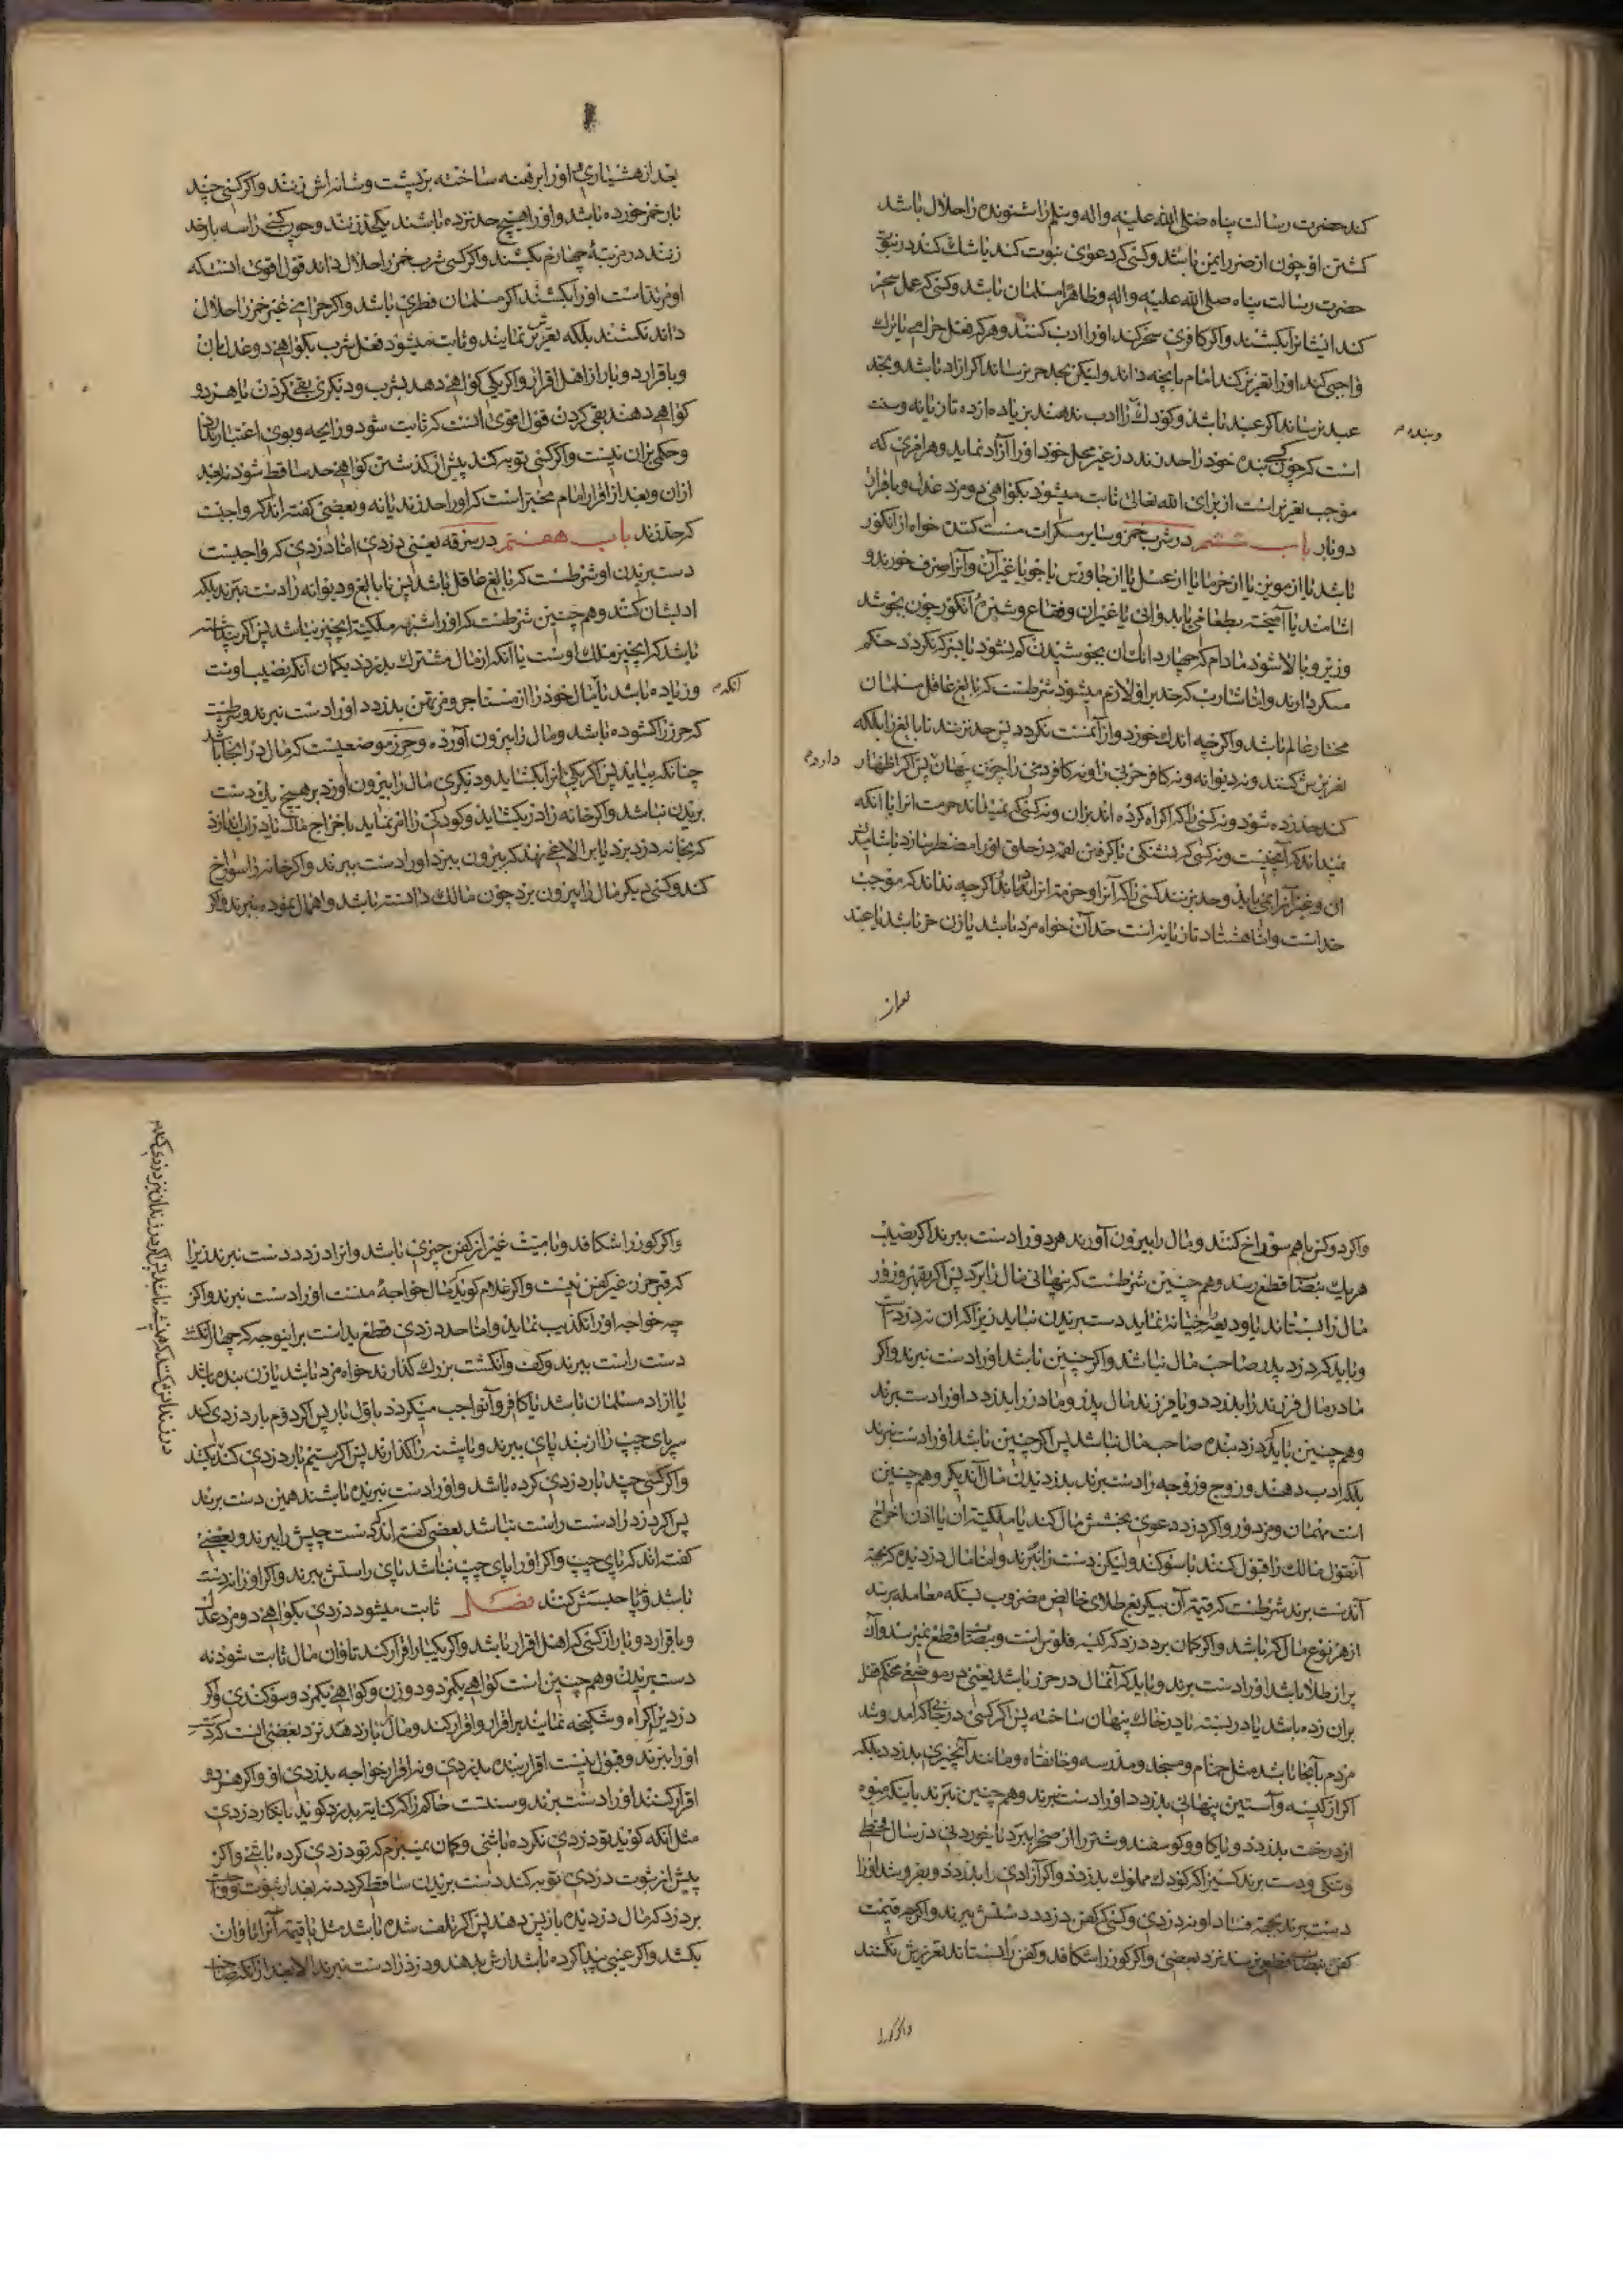 کند حضرت رسالت پناه صلی الله علیه واله وسلم را شنونده را حلال باشد
کشتن او چون از ضرر ایمن باشد و کسی که دعوی نبوت کند یا شک کند در نبوت
حضرت رسالت پناه صلی الله علیه واله وظاهرا مسلمان باشد و کسی که عمل سحر
کند ایشانرا بکشند واکر کافری سحر کند اورا ادب کنند وهر که فعل حرامی یا ترک
واجبی کند اورا تعزیر کند امام بانچه داند ولیکن بحد حر نرساند اکر ازاد باشد وبحد
عبد نرساند اکر عبد باشد وکودک را ادب ندهند بزیاده از ده تازیانه وسنت
وبنده
است که چون کسی بنده خود را حد زند در غیر محل خود اورا آزاد نماید وهر امری که
موجب تعزیر است از برای الله تعالی ثابت میشود بکواهی دو مرد عدل وباقرار
دوبار باب ششم در شرب خمر وسایر مسکرات مست کننده خواه از انکور
باشد یا از مویز یا از خرما یا از عسل یا از جاورس یا جو یا غیر آن وآنرا صرف خورند و
اشامند یا آمیخته بطعامی یا بدوائی یا غیر ان وفقاع وشیره انکور چون بجوشد
وزیر وبالا شود مادام که چهار دانک ان بجوشیدن کم نشود یا سرکه نکردد حکم
مسکر دارند واما شارب که حد بر او لازم میشود شرطست که بالغ عاقل مسلمان
مختار عالم باشد واکرچه اندک خورد واز آن مست نکردد پس حد نزنند نابالغ را بلکه
تعزیرش کنند ونه دیوانه ونه کافر حربی را ونه کافر ذمی را چون پنهان دارد پس اکر اظهار
کند حد زده شود ونه کسی را که اکراه کرده اند بران ونه کسی که نمیداند حرمت انرا یا آنکه
نمیداند که آن چیست ونه کسی که تشنکی یا کرفتن لقمه در حلق اورا مضطر سازد باشامیدن
ان وغیر آنرا نمی یابد وحد بزنند کسی را که آنرا وحرمة انرا داند اکرچه نداند که موجب
حد است واما هشتاد تازیانه است حد آن خواه مرد باشد یا زن حر باشد یا عبد
بعد از
بعد از هشیاری اورا برهنه ساخته بر پشت وشانه اش زنند واکر کسی چند
بار خمر خورده باشد واورا هیچ حد نزده باشند یکحد زنند وچون کسی را سه بار حد
زنند در مرتبهٔ چهارم بکشند واکر کسی شرب خمر را حلال داند قول اقوی انست که
او مرتد است اورا بکشند اکر مسلمان فطری باشد واکر حرامی غیر خمر را حلال
داند نکشند بلکه تعزیرش نمایند وثابت میشود فعل شرب بکواهی دو عدل بان
وباقرار دوبار از اهل اقرار واکر یکی کواهی دهد بشرب ودیکری بقی کردن یا هر دو
کواهی دهند بقی کردن قول اقوی انست که ثابت شود ورایحه وبوی اعتبار ندارد
وحکمی بران نیست واکر کسی توبه کند پیش از کذشتن کواهی حد ساقط شود نه بعد
ازان وبعد از اقرار امام مخیر است که اورا حد زند یا نه وبعضی کفته اند که واجبست
که حد زند باب هفتم در سرقه یعنی دزدی اما دزدی که واجبست
دست بریدن او شرطست که بالغ عاقل باشد پس نابالغ ودیوانه را دست نبرند بلکه
ادبشان کنند وهم چنین شرطست که اورا شبهه ملکیة انچیز نباشد پس اکر پنداشته
باشد که انچیز ملک اوست یا آنکه از مال مشترک بدزدد بکمان آنکه نصیب اوست
وزیاده باشد یا آنکه مال خود را از مستاجر ومرتهن بدزدد اورا دست نبرند وشرطست
که حرز را کشوده باشد ومال را بیرون آورده وحرز موضعیست که مال در انجا باشد
چنانکه بیاید پس اکر یکی انرا بکشاید ودیکری مال را بیرون اورد بر هیچ یک دست
بریدن نباشد واکر خانه را در بکشاید وکودکی را امر نماید باخراج مال یا در انبانی اندازد
که بخانه دزد برد یا بر الاغی نهد که بیرون ببرد اورا دست ببرند واکر خانه را سوراخ
کند وکسی دیکر مال را بیرون برد چون مالک دانسته باشد واهمال نموده نبرند واکر
واکر دو کس باهم سوراخ کنند ومال را بیرون آورند هر دو را دست ببرند اکر نصیب
هر یک بنصاب قطع رسد وهم چنین شرطست که پنهانی مال را برد پس اکر بقهر وزور
مال را بستاند یا ودیعه را خیانة نماید دست بریدن نباید زیرا که ان نه دزدیست
وباید که دزد پدر صاحب مال نباشد واکر چنین باشد اورا دست نبرند واکر
مادر مال فرزند را بدزدد ویا فرزند مال پدر ومادر را بدزدد اورا دست برند
وهم چنین باید که دزد بنده صاحب مال نباشد پس اکر چنین باشد اورا دست نبرند
بلکه ادب دهند وزوج وزوجه را دست برند بدزدیدن مال آندیکر وهم چنین
است مهمان ومزدور واکر دزد دعوی بخشش مال کند یا ملکیت ان یا اذن اخراج
آنقول مالک را قبول کنند با سوکند ولیکن دست را نبرند واما مال دزدیده که بجهة
آندست برند شرطست که قیمة آن بیکربع طلای خالص مضروب بسکه معامله برسد
از هر نوع مال که باشد واکر کمان برد دزد که کیسه فلوس است وبنصاب قطع نمیرسد وآن
پر از طلا باشد اورا دست برند وباید که آنمال در حرز باشد یعنی در موضعی محکم قفل
بران زده باشد یا در بسته یا در خاک پنهان ساخته پس اکر کسی در جائی که امد وشد
مردم بآنجا باشد مثل حمام ومسجد ومدرسه وخانقاه ومانند آنچیزی بدزدد بلکه
اکر از کیسه وآستین پنهانی بدزدد اورا دست نبرند وهم چنین نبرند باینکه میوه
از درخت بدزدد ویا کاو وکوسفند وشتر را از صحرا ببرد یا خوردنی در سال قحط
وتنکی ودست برند کسیرا که کودک مملوک بدزدد واکر آزادی را بدزدد وبفروشد اورا
دست برند بجهة فساد او نه دزدی وکسی که کفن دزدد دستش ببرند واکرچه قیمت
کفن بنصاب قطع نرسد نزد بعضی واکر کور را شکافد وکفن را نستاند تعزیرش کنند
واکر کور را
واکر کور را شکافد وبا میت غیر از کفن چیزی باشد وانرا دزدد دست نبرند زیرا
که قبر حرز غیر کفن نیست واکر غلام کوید که مال خواجهٔ منست اورا دست نبرند واکر
چه خواجه اورا تکذیب نماید واما حد دزدی قطع ید است براینوجه که چهار انکشت
دست راست ببرند وکف وانکشت بزرک کذارند خواه مرد باشد یا زن بنده باشد
یا ازاد مسلمان باشد یا کافر وآنواجب میکردد باول بار پس اکر دوم بار دزدی کند
سر پای چپ را از بند پای ببرند وپاشنه را کذارند پس اکر سیم بار دزدی کند بکشند
در زندانش کنند که همیشه باشد پس اکر در زندان نیز دزدی کند
واکر کسی چند بار دزدی کرده باشد واورا دست نبریده باشند همین دست برند
پس اکر دزد را دست راست نباشد بعضی کفته اند که دست چپش را ببرند وبعضی
کفته اند که پای چپ واکر اورا پای چپ نباشد پای راستش ببرند واکر اورا نه دست
باشد ونه پا حبسش کنند فصل ثابت میشود دزدی بکواهی دو مرد عدل
وباقرار دوبار از کسی که اهل اقرار باشد واکر یکبار اقرار کند تاوان مال ثابت شود نه
دست بریدن وهم چنین است کواهی یکمرد ودو زن وکواهی یکمرد وسوکندی واکر
دزد را بر اکراه وشکنجه نمایند بر اقرار واقرار کند ومال باز دهد نزد بعضی انست که دست
اورا ببرند وقبول نیست اقرار بنده بدزدی ونه اقرار خواجه بدزدی او واکر هر دو
اقرار کنند اورا دست برند وسنتست حاکم را که کنایة بدزد کوید بانکار دزدی
مثل آنکه کوید تو دزدی نکرده باشی وکمان نمیبرم که تو دزدی کرده باشی واکر
پیش از ثبوت دزدی توبه کند دست بریدن ساقط کردد نه بعد از ثبوت وواجبست
بر دزد که مال دزدیده باز پس دهد پس اکر تلف شده باشد مثل یا قیمة آنرا تاوان
بکشد واکر عیبی پیدا کرده باشد ارش بدهد ودزد را دست نبرند الا بعد از آنکه صاحب